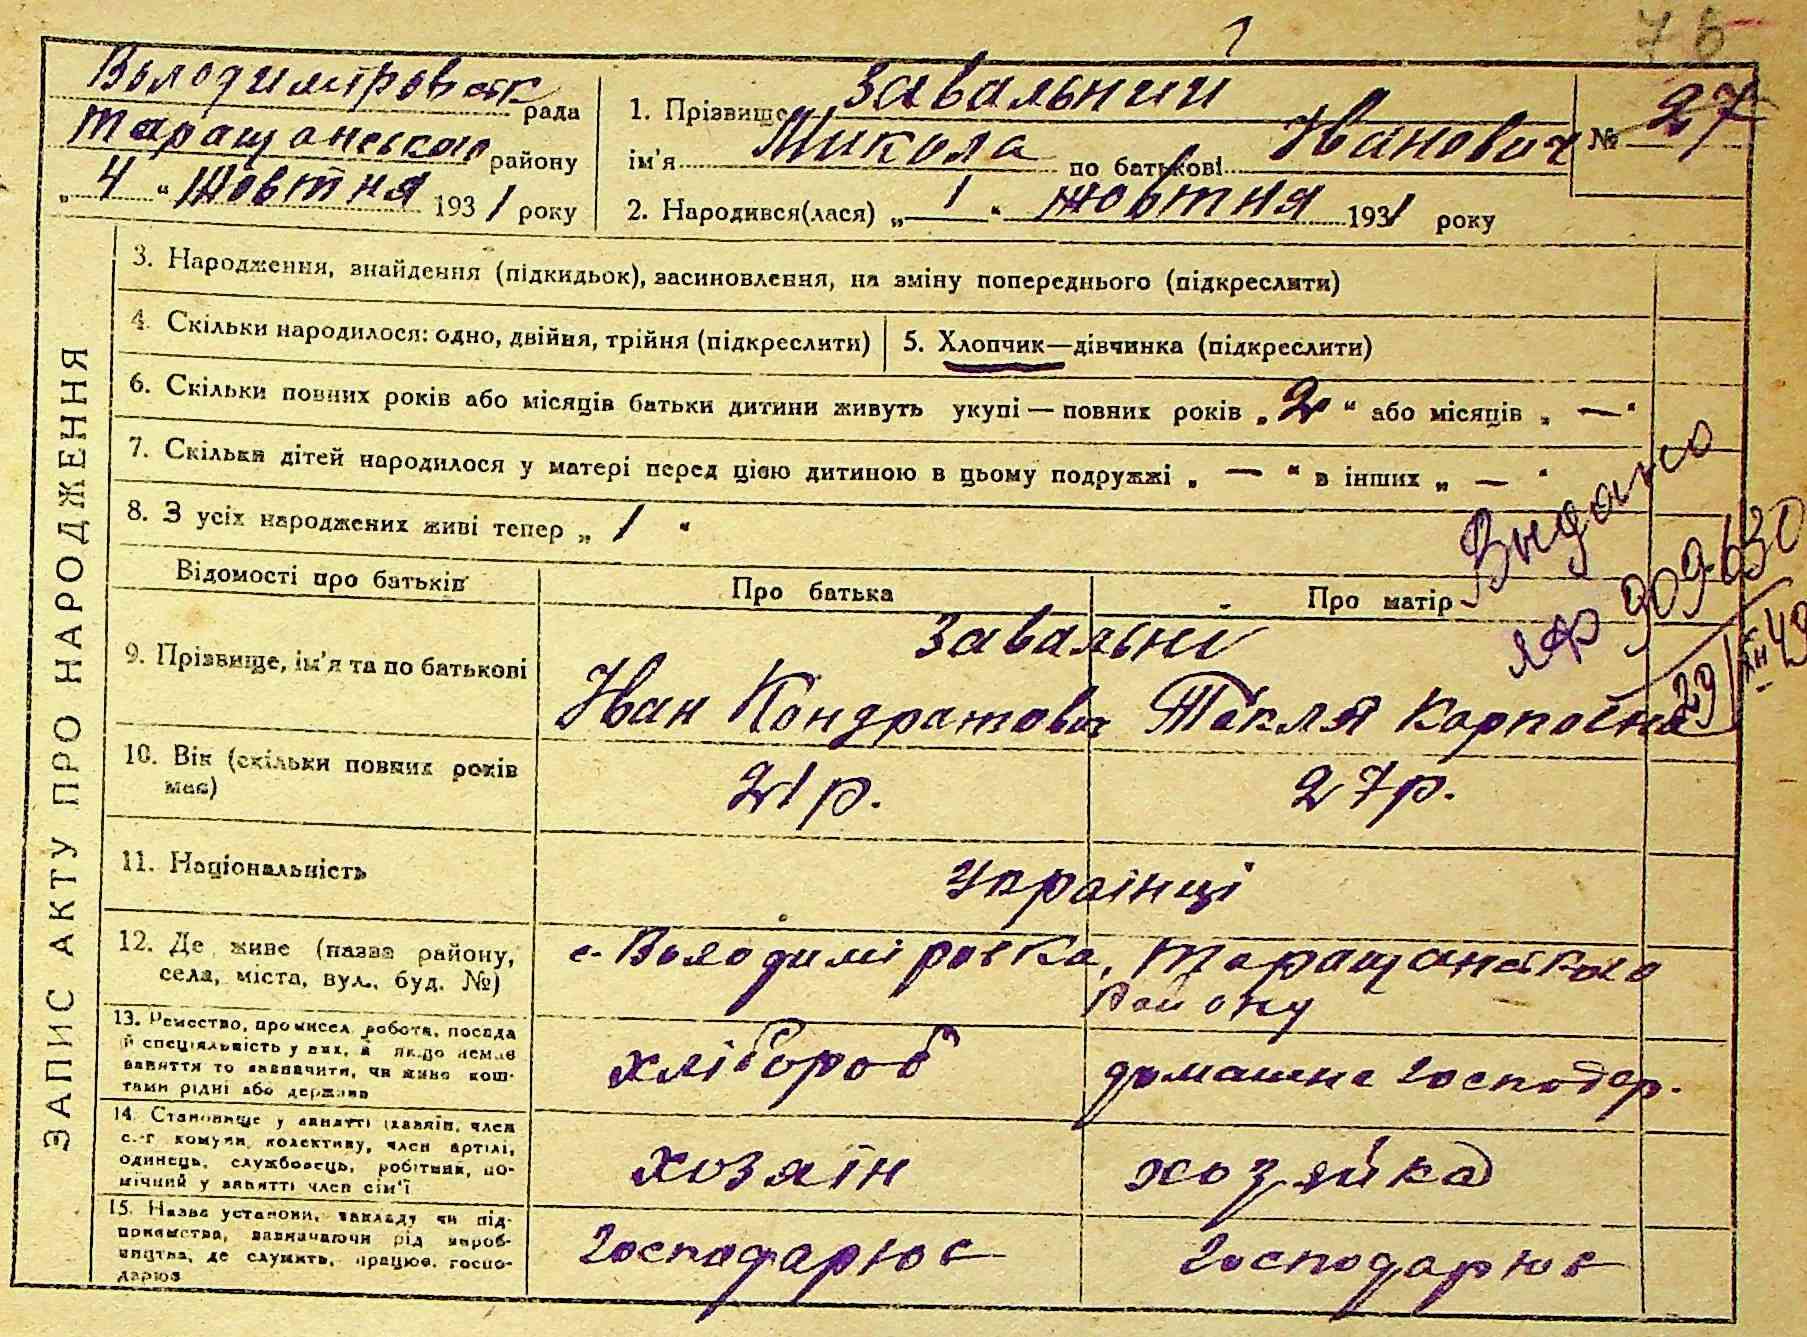 76
Володиміровськ рада
Таращанського району
„ 4 “ Жовтня 1931 року
1. Прізвище Завальний
ім'я Микола по батькові Іванович
№ 27
2. Народився(лася) „ 1 “ жовтня 1931 року
ЗАПИС АКТУ ПРО НАРОДЖЕННЯ
3. Народження, знайдення (підкидьок), засиновлення, на зміну попереднього (підкреслити)
4. Скільки народилося: одно, двійня, трійня (підкреслити)
5. Хлопчик—дівчинка (підкреслити)
6. Скільки повних років або місяців батьки дитини живуть укупі — повних років „ 2 “ або місяців „ — “
7. Скільки дітей народилося у матері перед цією дитиною в цьому подружжі „ — “ в інших „ — “
8. З усіх народжених живі тепер „ 1 “
Видано
ЯФ 909630
Відомості про батьків
Про батька
Про матір
9. Прізвище, ім'я та по батькові
Завальні
Іван Кондратович
Текля Карповна
10. Вік (скільки повних років
має)
21 р.
27 р.
11. Національність
Українці
12. Де живе (назва району,
села, міста, вул., буд. №)
с. Володиміровка, Таращанського
Району
13. Ремество, промисел, робота, посада
й спеціяльність у них, а якщо немає
заняття то зазначити, чи живе кош-
тами рідні або держави
хлібороб
домашнє господар.
14. Становище у занятті (хазяїн, член
с.-г комуни, колективу, член артілі,
одинець, службовець, робітник, по-
мічний у занятті член сім'ї
хозяїн
хозяйка
15. Назва установи, закладу чи під-
приємства, зазначаючи рід вироб-
ництва, де служить, працює, госпо-
дарює
Господарює
Господарює